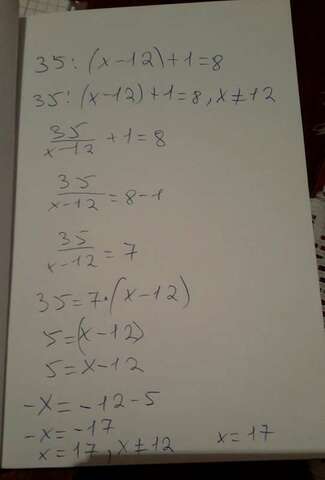 35:(x-12)+1=8
35:(x-12)+1=8, x≠12
35/(x-12) +1=8
35/(x-12) =8-1
35/(x-12) =7
35=7·(x-12)
5=(x-12)
5=x-12
-x=-12-5
-x=-17
x=17, x≠12 x=17